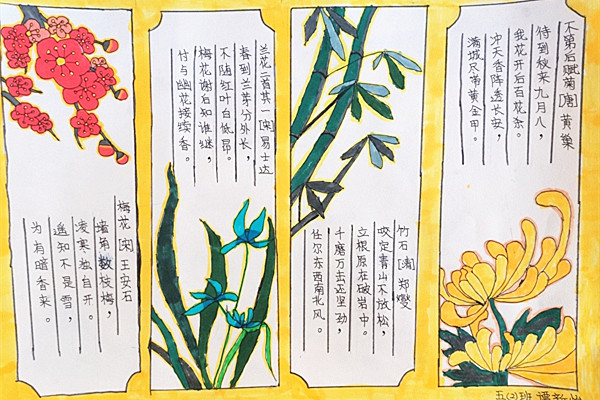 不第后赋菊[唐]黄巢
待到秋来九月八，
我花开后百花杀。
冲天香阵透长安，
满城尽带黄金甲。
竹石[清]郑燮
咬定青山不放松，
立根原在破岩中。
千磨万击还坚劲，
任尔东西南北风。
兰花二首其一[宋]易士达
春到兰芽分外长，
不随红叶自低昂。
梅花谢后知谁继，
竹与幽花接续香。
梅花[宋]王安石
墙角数枝梅，
凌寒独自开。
遥知不是雪，
为有暗香来。
五(2)班